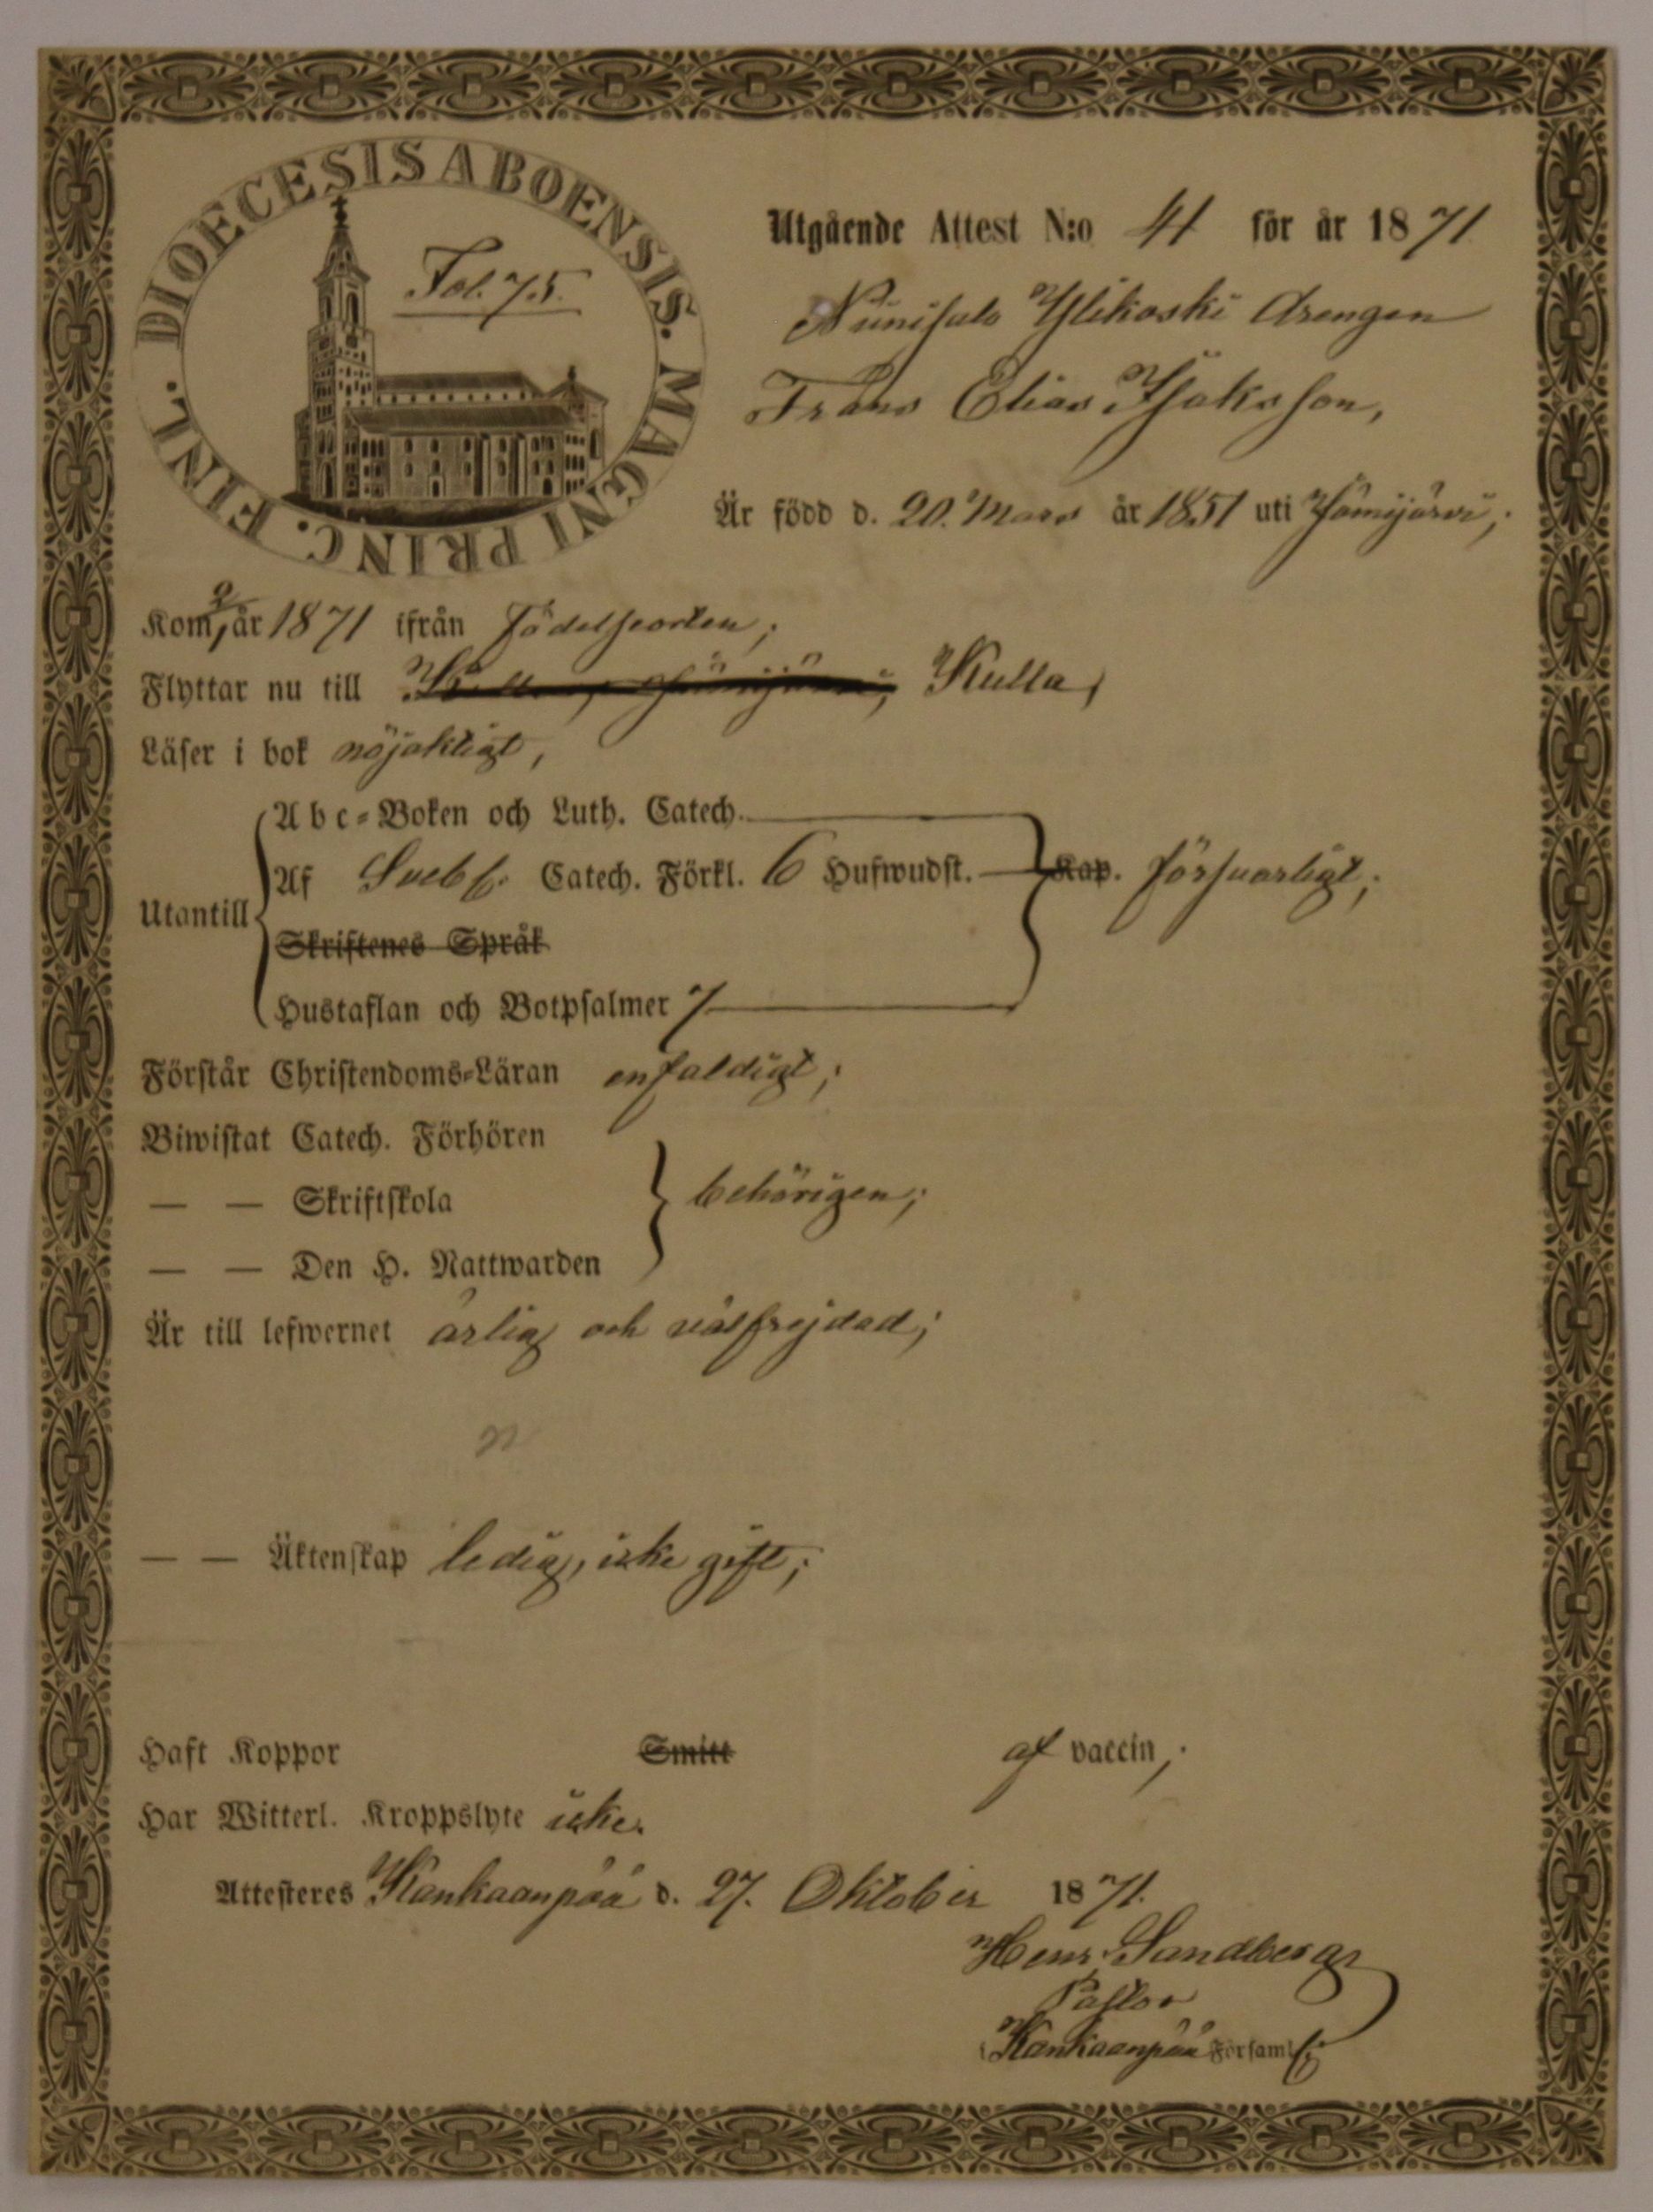 DIOECESIS ABOENSIS. MAGNI PRINC. FINL.
Fol. 75.
Utgående Attest N:o 41 för år 1871
Niinisalo Ylikoski drengen
Frans Elias Isaksson,
Är född d. 20. Mars år 1851 uti Jämijärvi;
Kom år 1871 ifrån födelseorten;
Flyttar nu till Kulla, Jämijärvi; Kulla;
Läser i bok nöjaktigt,
Abc-Boken och Luth. Catech.
Utantill
Af Sveb. Catech. Förkl. 6 Hufwudst. Kap. försvarligt;
Skriftenes Språk
Hustaflan och Botpsalmer 7
Förstår Christendoms-Läran enfaldigt;
Biwistat Catech. Förhören
— — Skriftskola behörigen;
— — Den H. Nattwarden
Är till lefwernet ärlig och välfrejdad;
— — Äktenskap ledig, icke gift;
Haft Koppor Smitt af vaccin;
Har Witterl. Kroppslyte icke.
Attesteres Kankaanpää d. 27. Oktober 1871.
Henr. Sandberg
Pastor
Kankaanpää Församl.